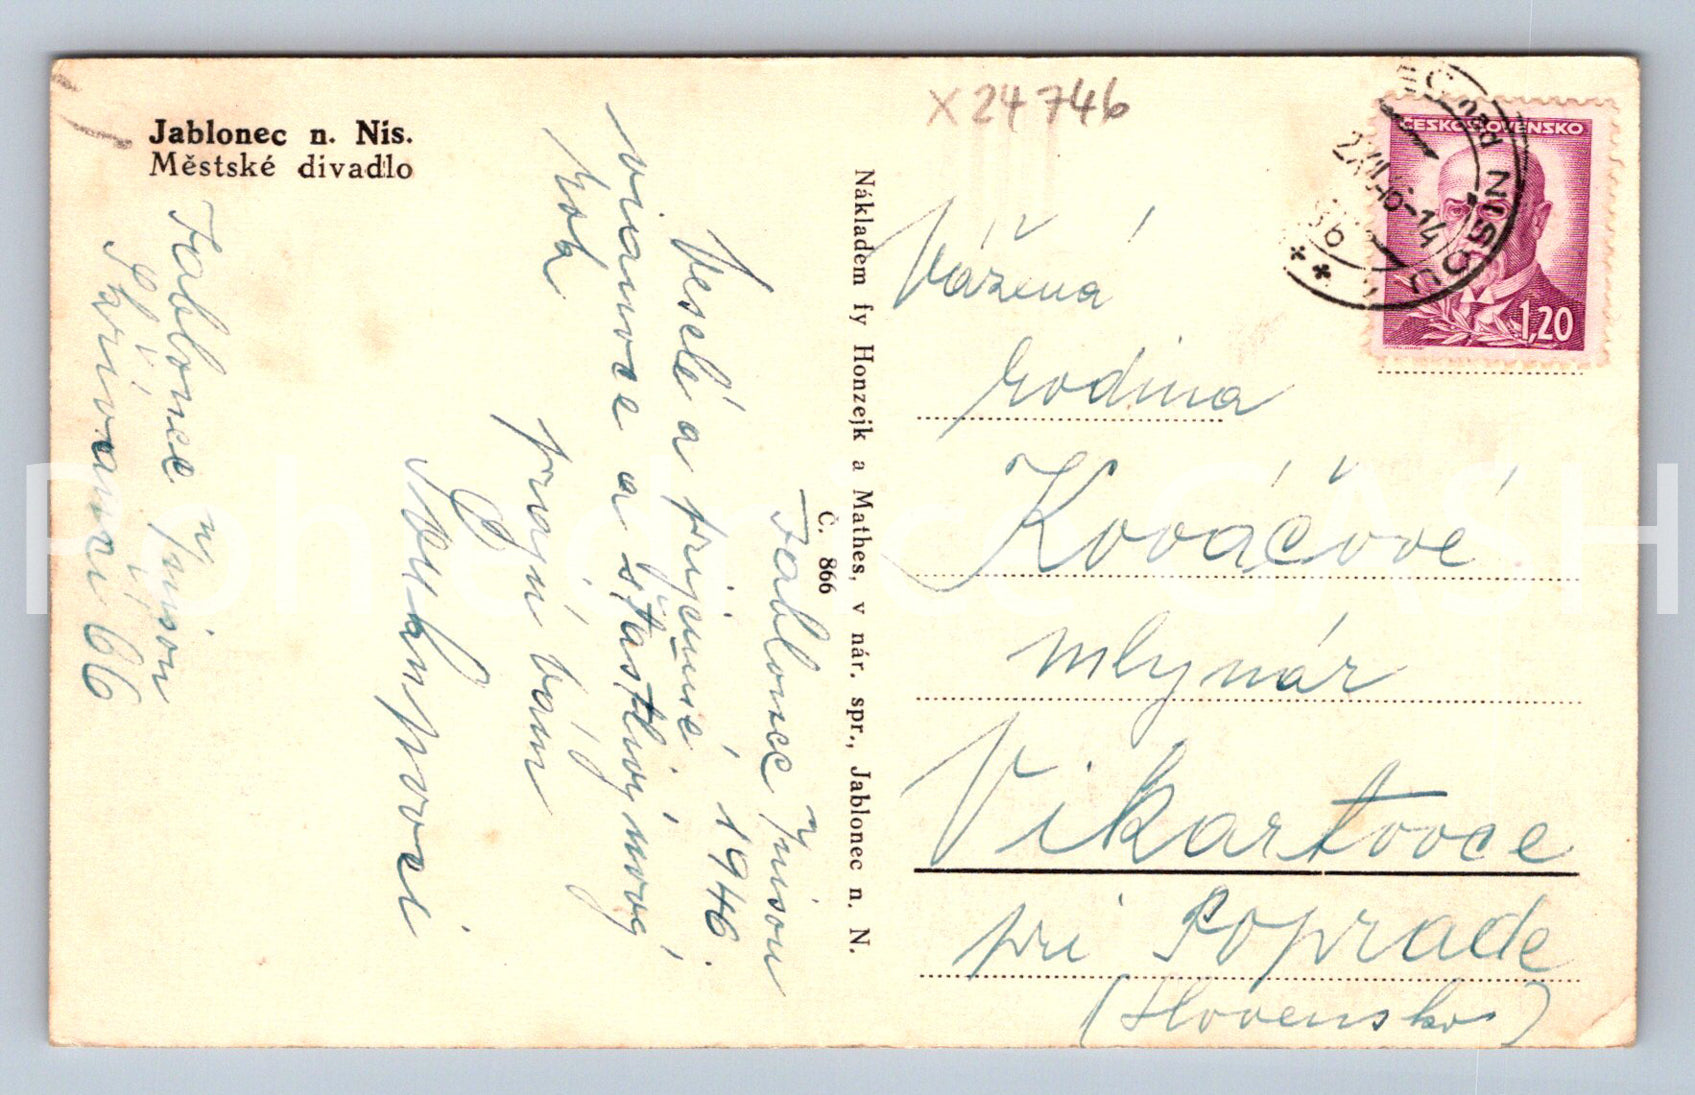 Jablonec n. Nis.
Městské divadlo
X 24746
ČESKOSLOVENSKO
1,20
NISOU
Nákladem fy Honzejk a Mathes, v nár. spr., Jablonec n. N.
Č. 866
Jablonec n/Nisou
1946.
Veselé a príjemné
vianoce a šťastlivý nový
rok
prajú vám
Jablonec n/Nisou
66
Vážená
rodina
Kováčové
mlynár
Vikartovce
pri Poprade
(Slovensko)
Pohlednice GASH